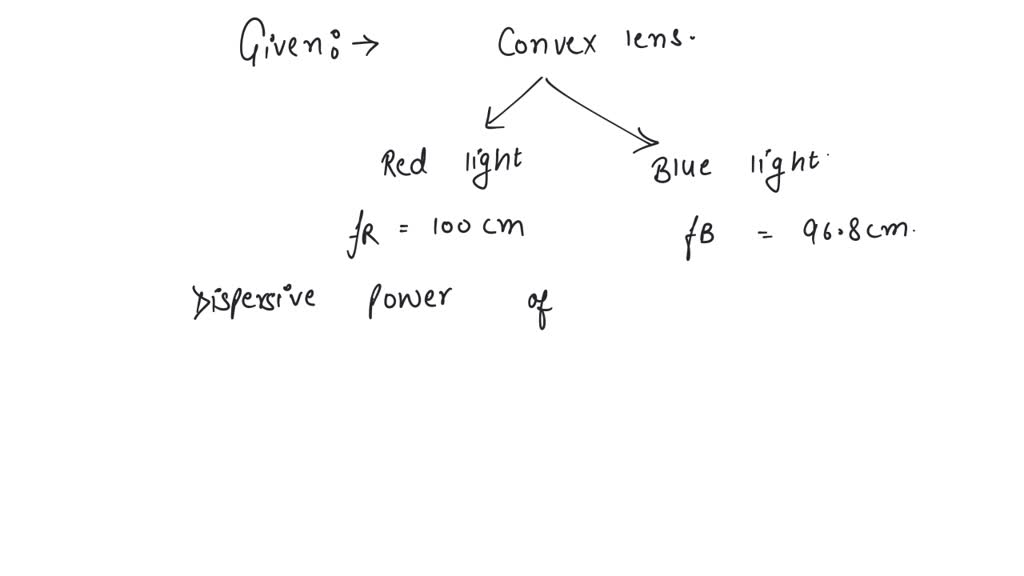 Given: → Convex lens.
Red light Blue light.
fR = 100 cm fB = 96.8 cm.
Dispersive power of